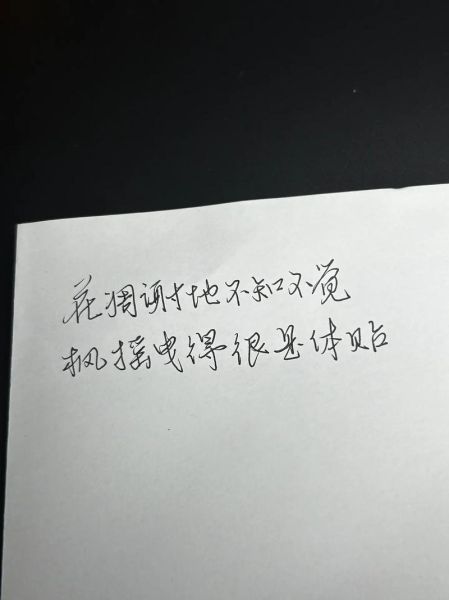 花凋谢地不知不觉
枫摇曳得很是体贴